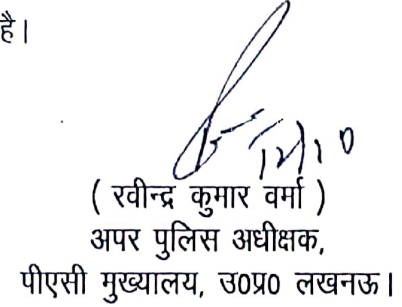 है।
( रवीन्द्र कुमार वर्मा )
अपर पुलिस अधीक्षक,
पीएसी मुख्यालय, उ0प्र0 लखनऊ।